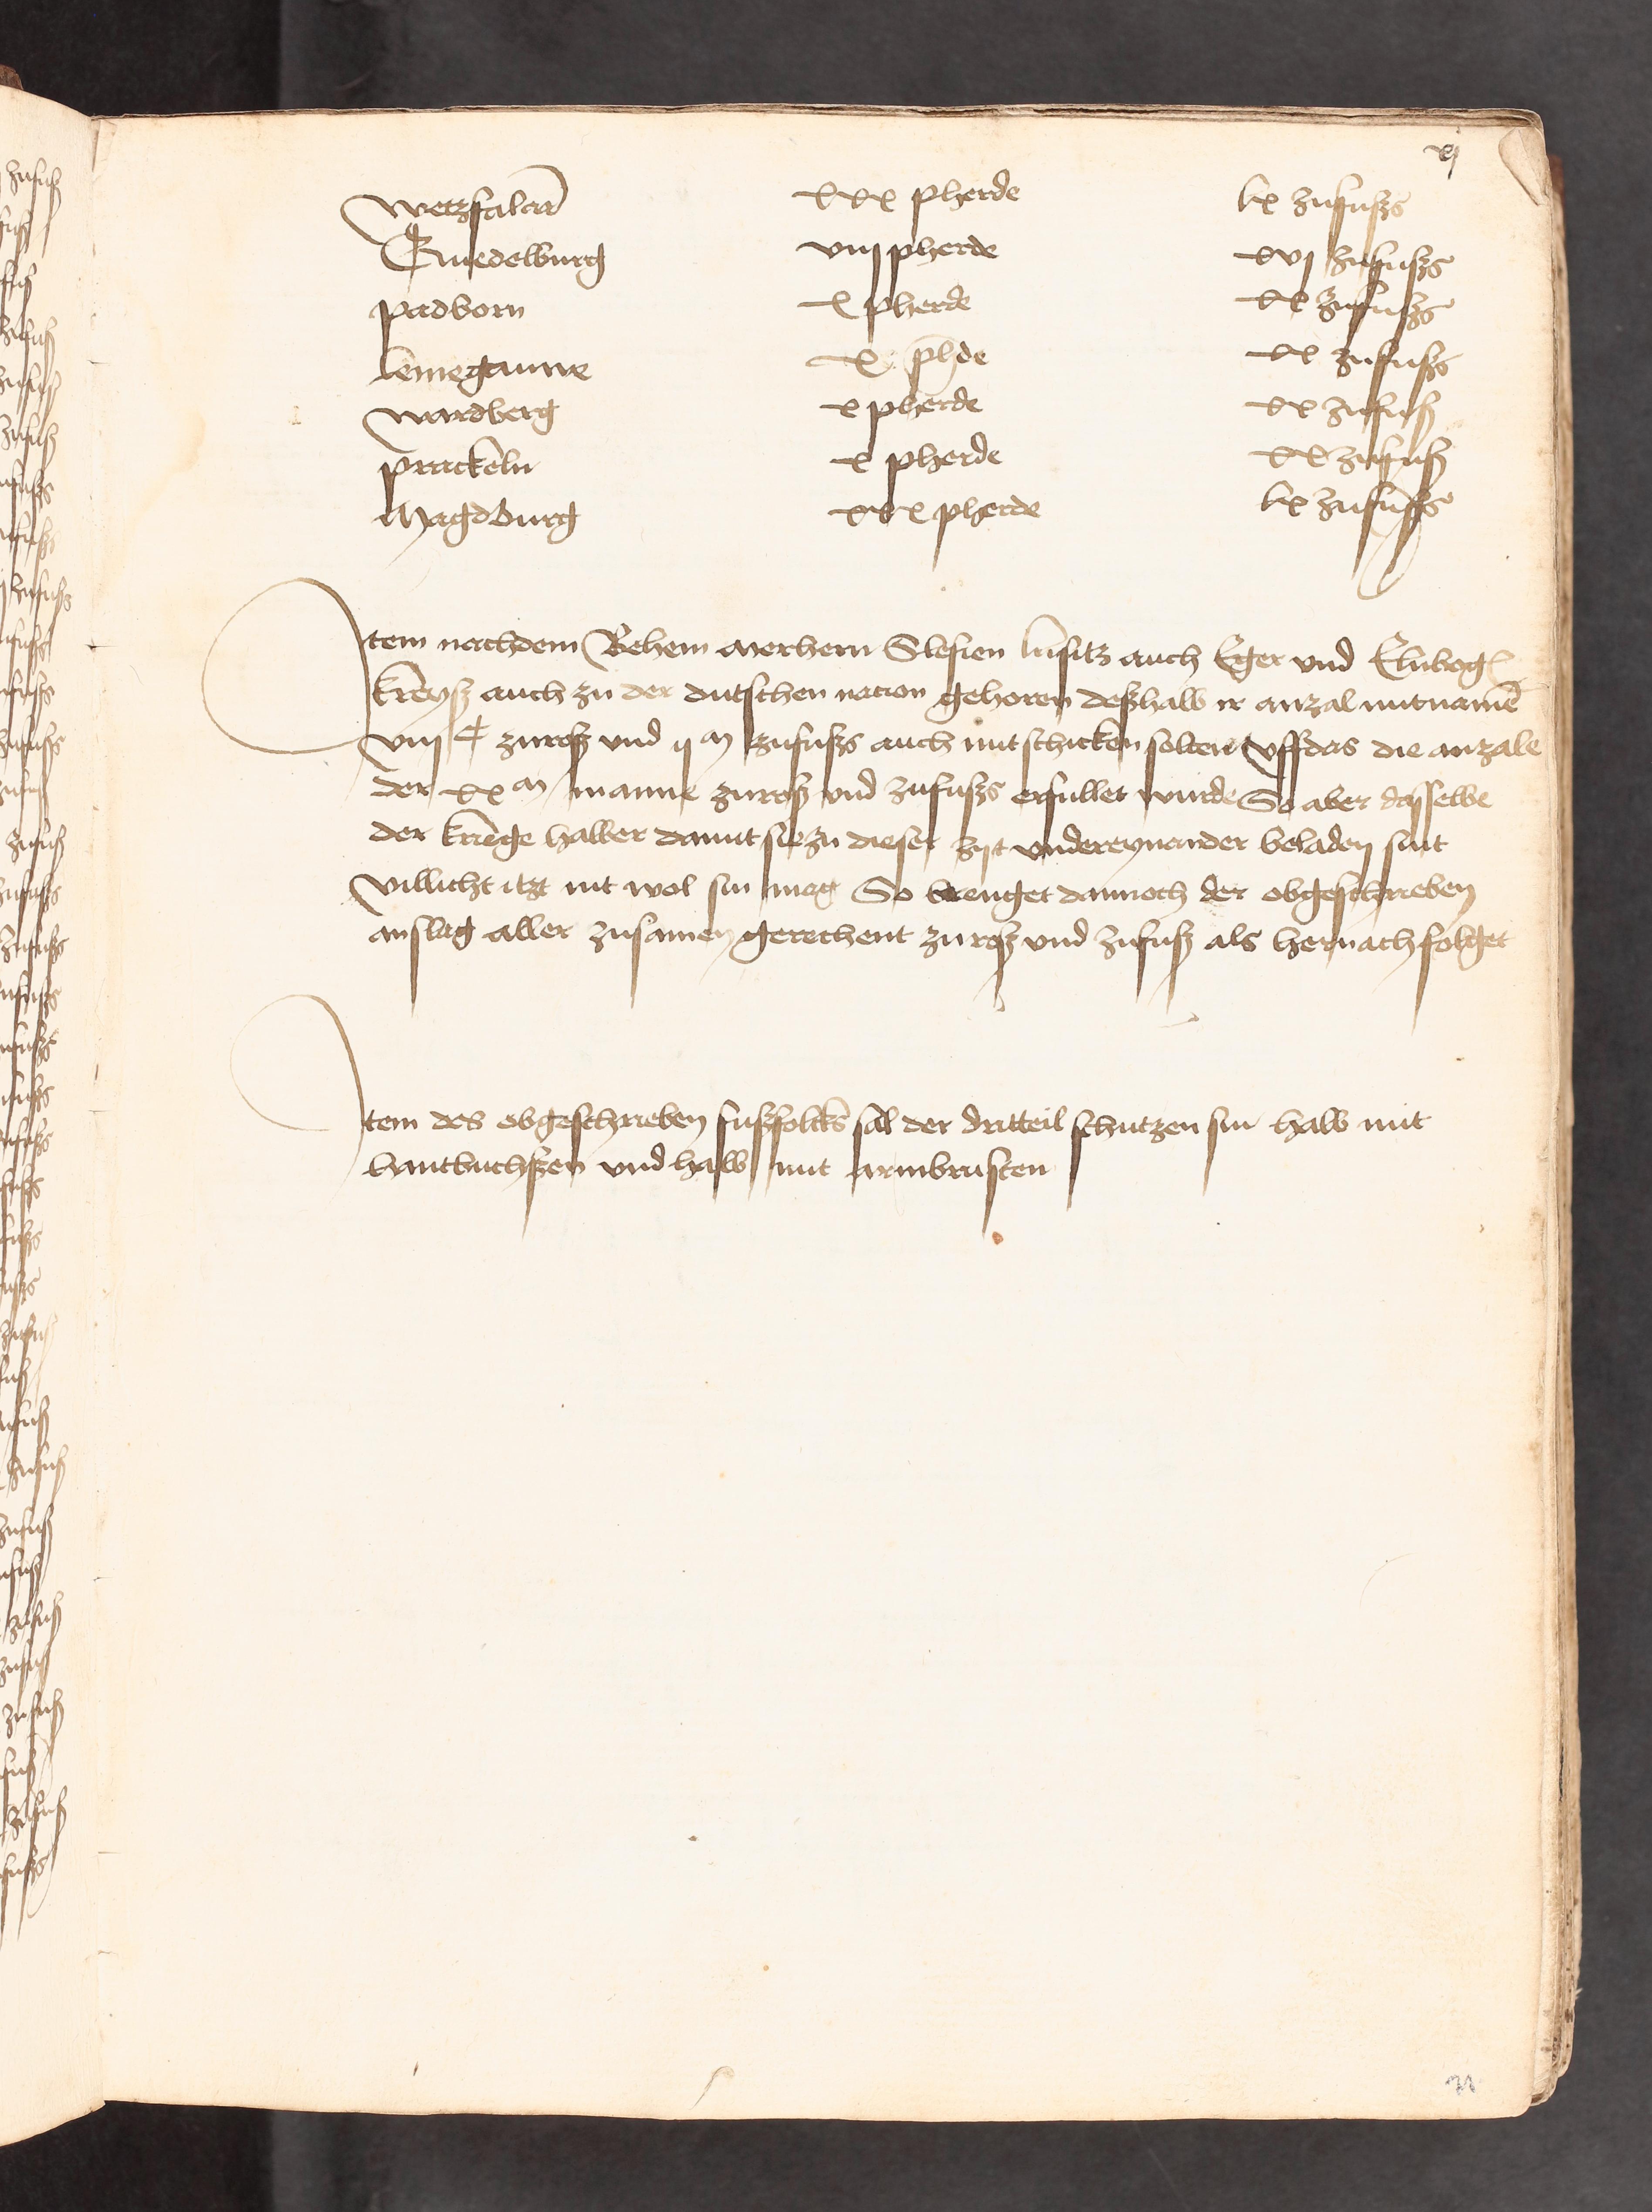 vj
Wetzfalar̄ xxx pherde lx zufußs
Quedelburg viij pherde xvj zufußs
padborn x pherde xx zufußs
Lēmegauwe x phde xx zufußs
Wardberg x pherde xx zufuß
Prackeln x pherde xx zufuß
Magdburg xxx pherde lx zufußs
Item nachdem Behem Merhern Slesien lusitz auch Eger vnd Elnbog
kreyß auch zu der dutschen nation gehoren deßhalb ir anzal mitnamē
viij C zuroß vnd ij M zufußs auch mit schicken solten vffdas die anzale
der xx M manne zuroß vnd zufußs erfullet wurde So aber dasselbe
der kriege halber damit sie zu dieser zyt vndereynander beladen sint
villicht itzt nit wol sin mag So brenget dannoch der obgeschrieben
anslag aller zusamen gerechent zuroß vnd zufuß als hernachfolget
Item des obgeschrieben fußfolcks sal der dritteil schutzen sin halb mit
hantbuchßen vnd halb mit armbrusten